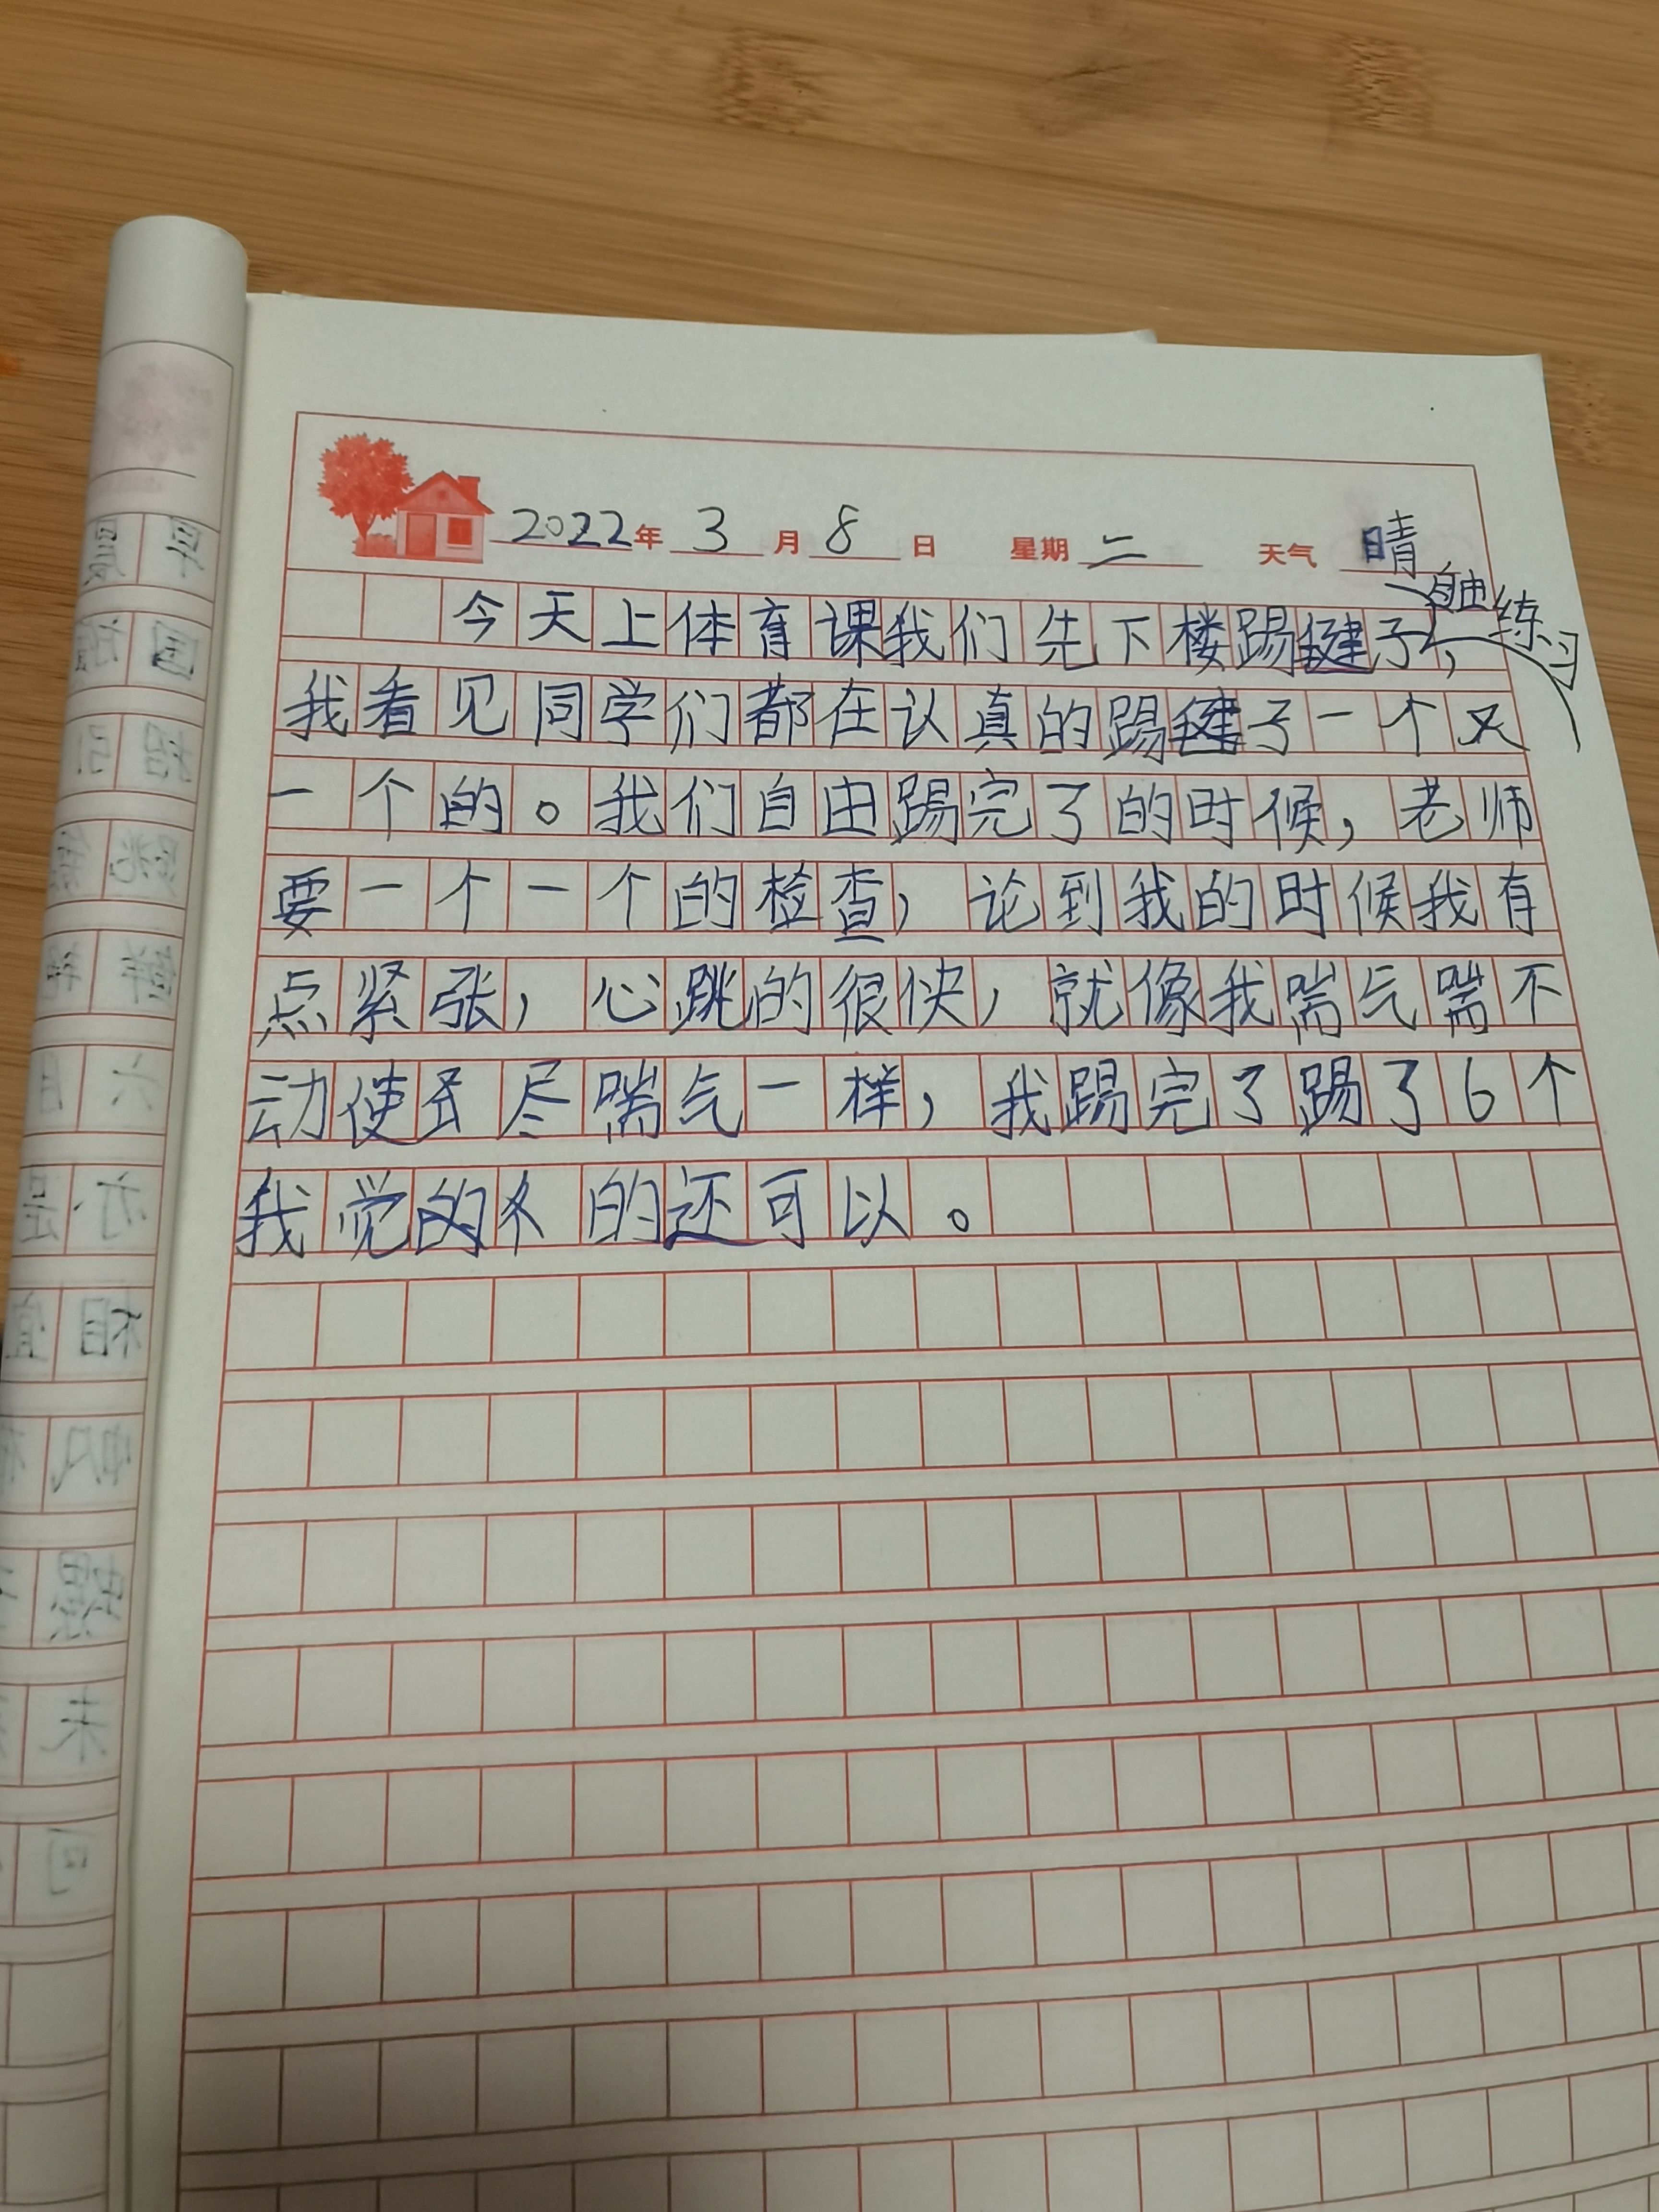 2022年 3月 8日 星期二 天气 晴
自由练习
今天上体育课我们先下楼踢毽子,
我看见同学们都在认真的踢毽子一个又
一个的。我们自由踢完了的时候,老师
要一个一个的检查,论到我的时候我有
点紧张,心跳的很快,就像我喘气喘不
动使尽喘气一样,我踢完了踢了6个
我觉的的还可以。